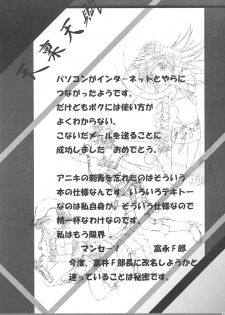 天稟天�
パソコンがインターネットとやらに
つながったようです。
だけどもボクには使い方が
よくわからない。
こないだメールを送ることに
成功しました　おめでとう。
アニキの刺青を忘れたのはそういう
本の仕様なんです。いろいろテキトー
なのは私自身が、そういう仕様なので
精一杯なわけなのです。
私はもう限界。
マンセー！　富永F郎
今度、富井F郎長に改名しようかと
迷っていることは秘密です。